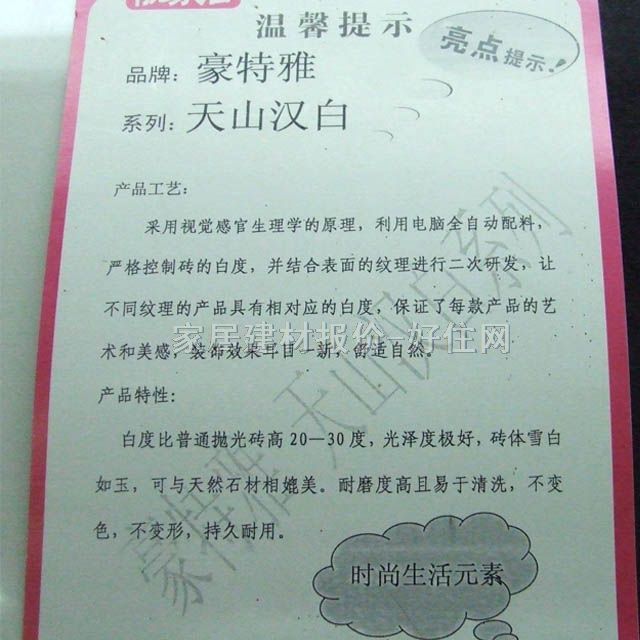 温馨提示
亮点提示!
品牌：豪特雅
系列：天山汉白
产品工艺：
采用视觉感官生理学的原理，利用电脑全自动配料，
严格控制砖的白度，并结合表面的纹理进行二次研发，让
不同纹理的产品具有相对应的白度，保证了每款产品的艺
术和美感，装饰效果耳目一新，舒适自然。
家居建材报价 好住网
产品特性：
白度比普通抛光砖高20—30度，光泽度极好，砖体雪白
如玉，可与天然石材相媲美。耐磨度高且易于清洗，不变
色，不变形，持久耐用。
豪特雅 天山汉白系列
时尚生活元素